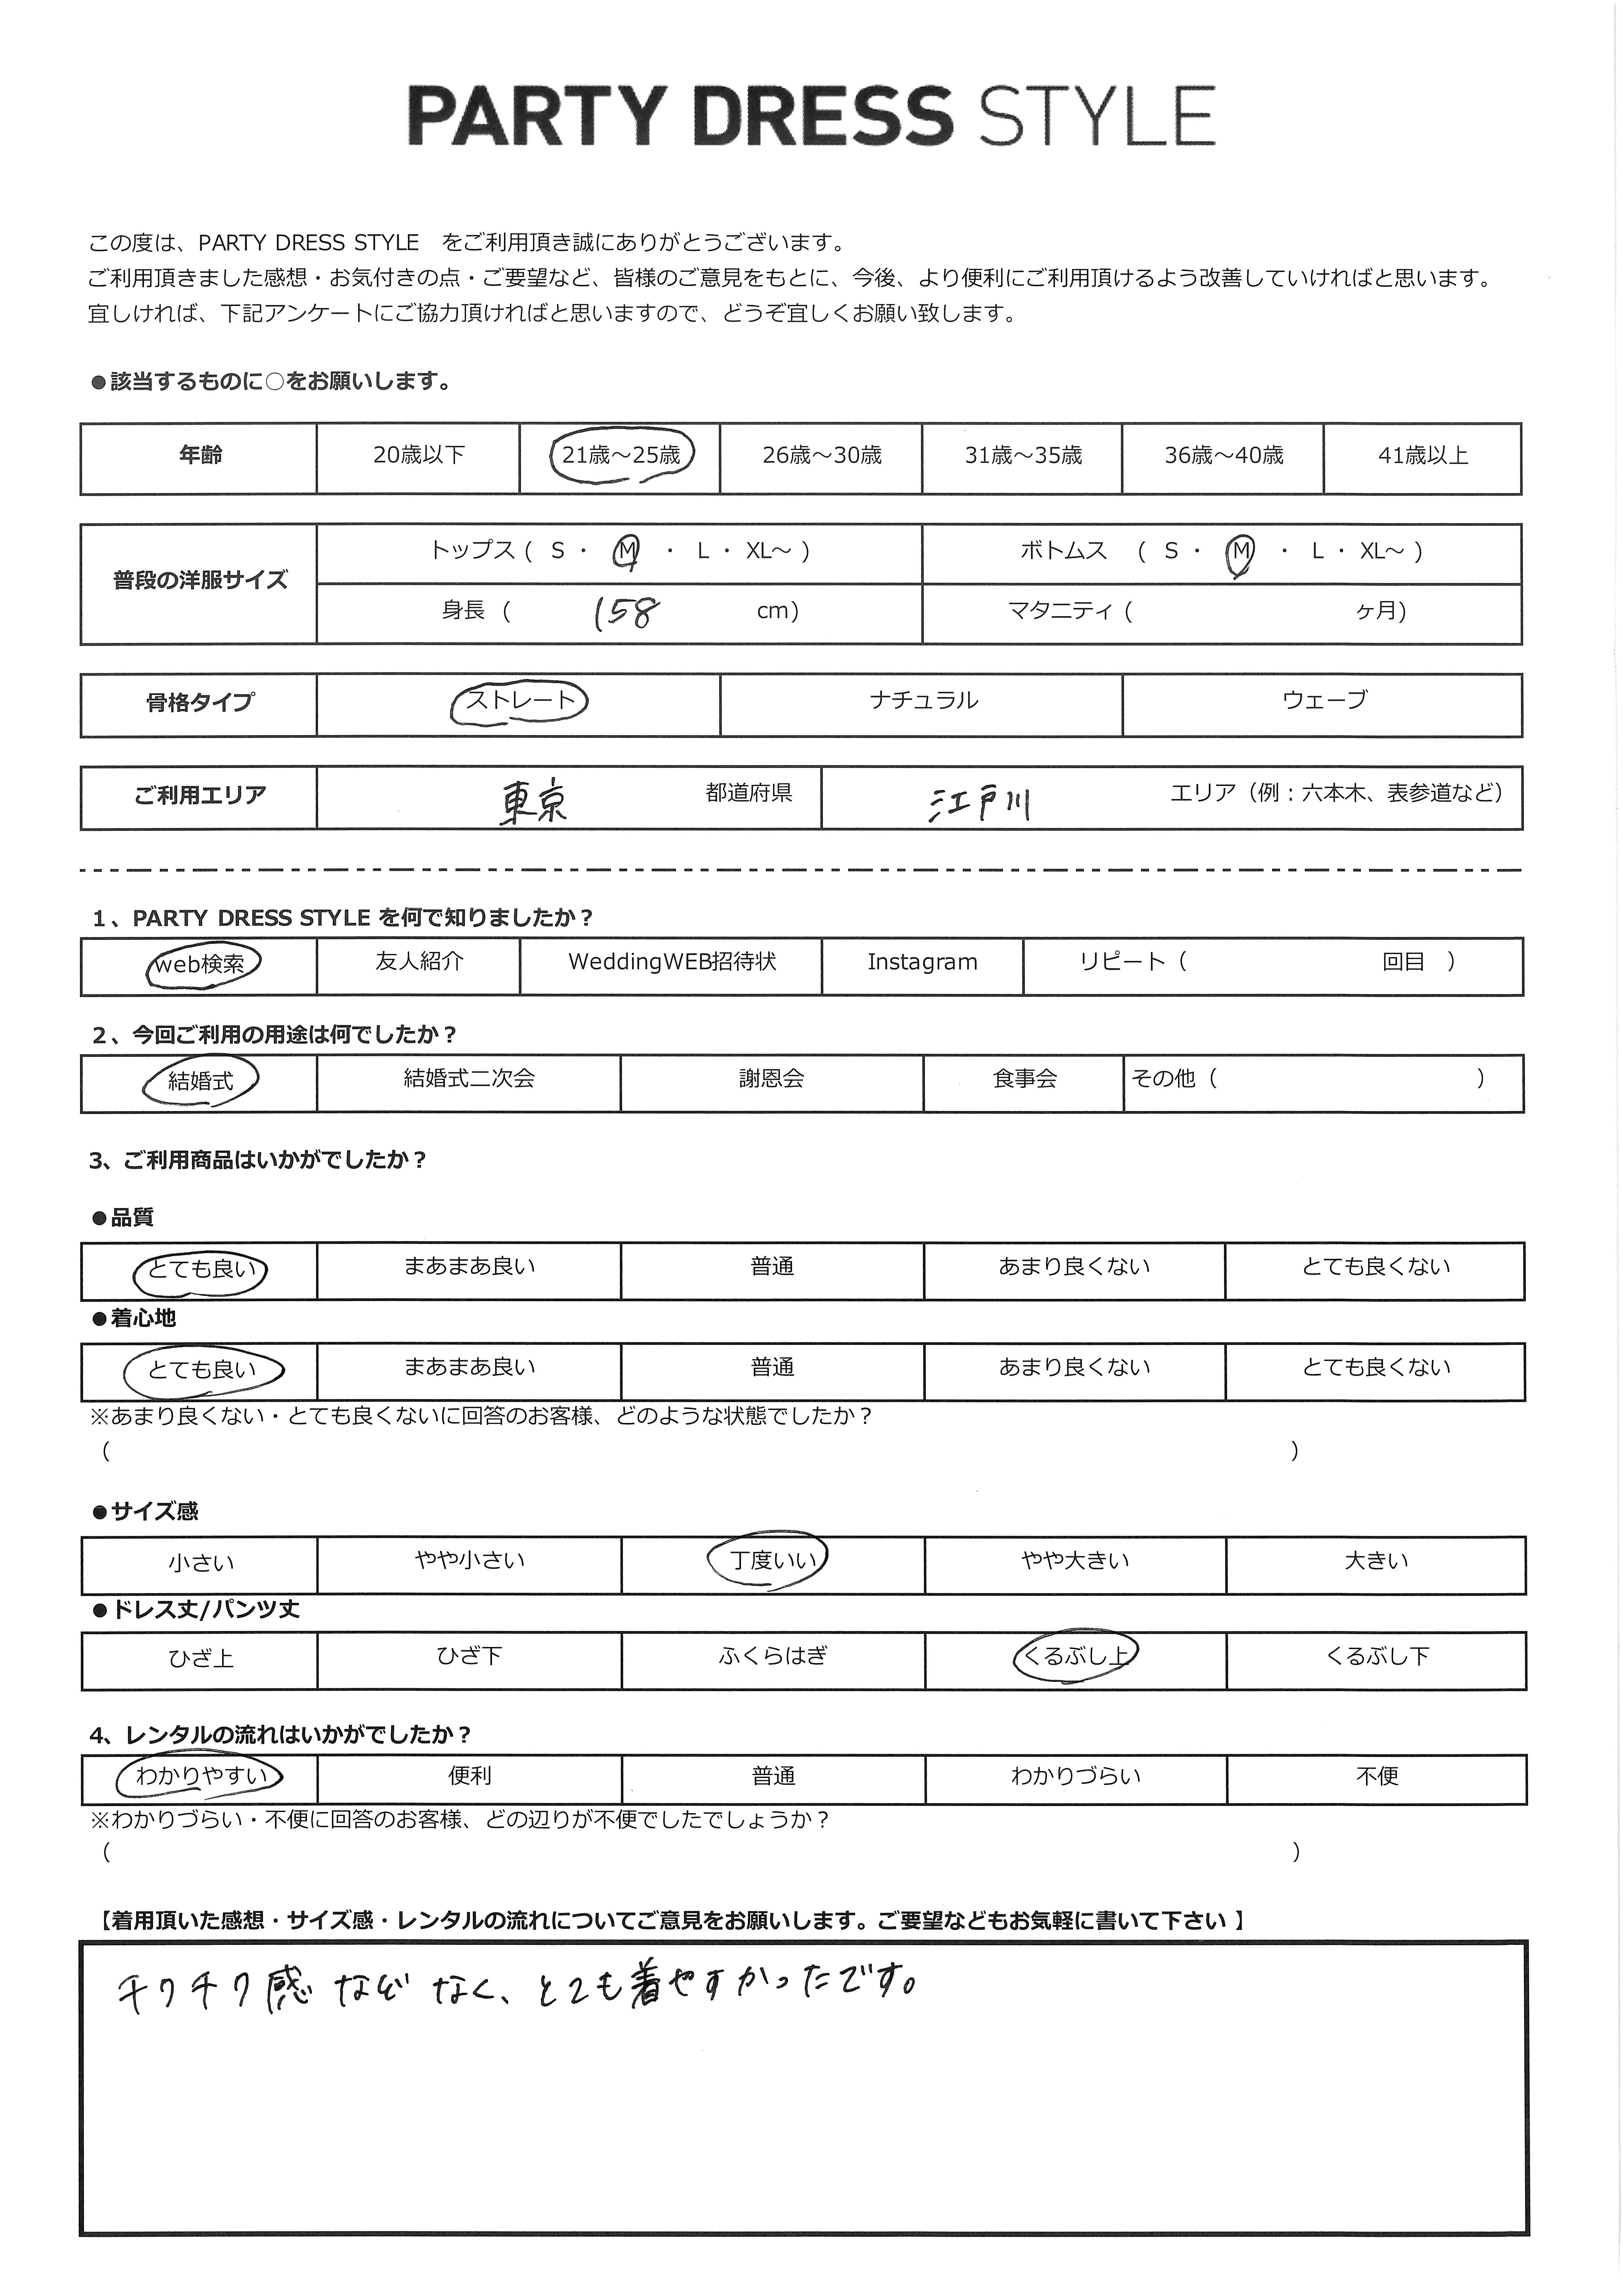 PARTY DRESS STYLE
この度は、PARTY DRESS STYLE　をご利用頂き誠にありがとうございます。
ご利用頂きました感想・お気付きの点・ご要望など、皆様のご意見をもとに、今後、より便利にご利用頂けるよう改善していければと思います。
宜しければ、下記アンケートにご協力頂ければと思いますので、どうぞ宜しくお願い致します。
●該当するものに○をお願いします。
年齢 20歳以下 21歳～25歳 26歳～30歳 31歳～35歳 36歳～40歳 41歳以上
普段の洋服サイズ
トップス ( S ・ M ・ L ・ XL～ ) ボトムス ( S ・ M ・ L ・ XL～ )
身長 ( 158 cm) マタニティ ( ヶ月)
骨格タイプ ストレート ナチュラル ウェーブ
ご利用エリア 東京 都道府県 江戸川 エリア（例：六本木、表参道など）
1、PARTY DRESS STYLE を何で知りましたか？
web検索 友人紹介 WeddingWEB招待状 Instagram リピート（ 回目 ）
2、今回ご利用の用途は何でしたか？
結婚式 結婚式二次会 謝恩会 食事会 その他（ ）
3、ご利用商品はいかがでしたか？
●品質
とても良い まあまあ良い 普通 あまり良くない とても良くない
●着心地
とても良い まあまあ良い 普通 あまり良くない とても良くない
※あまり良くない・とても良くないに回答のお客様、どのような状態でしたか？
（ ）
●サイズ感
小さい やや小さい 丁度いい やや大きい 大きい
●ドレス丈/パンツ丈
ひざ上 ひざ下 ふくらはぎ くるぶし上 くるぶし下
4、レンタルの流れはいかがでしたか？
わかりやすい 便利 普通 わかりづらい 不便
※わかりづらい・不便に回答のお客様、どの辺りが不便でしたでしょうか？
（ ）
【着用頂いた感想・サイズ感・レンタルの流れについてご意見をお願いします。ご要望などもお気軽に書いて下さい 】
チクチク感 など なく、とても着やすかったです。